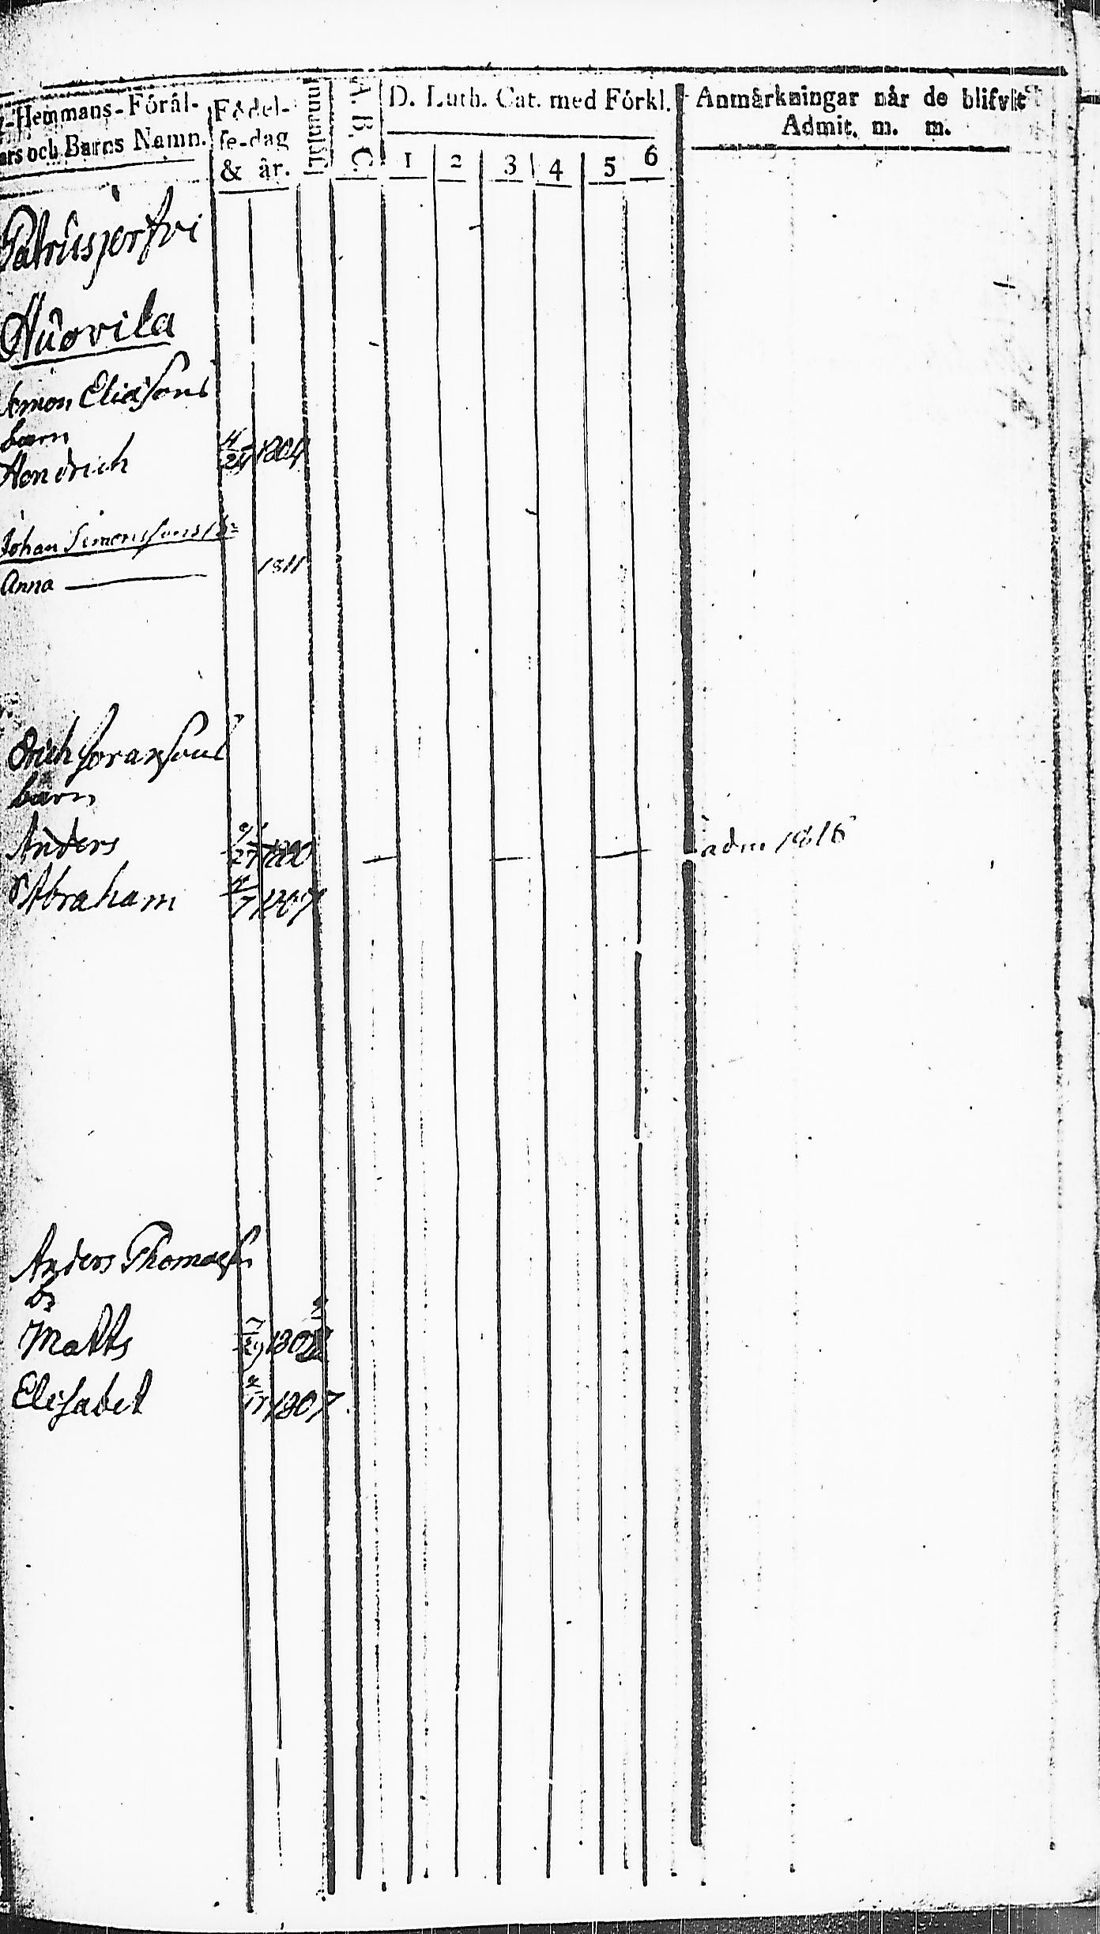 -Hemmans-Förål-
ars och Barns Namn.
Födel-
se-dag
& år.
A. B. C.
D. Luth. Cat. med Förkl.
1 2 3 4 5 6
Anmärkningar når de blifvit
Admit. m. m.
Huovila
Simon Eliæsons
barn
Hendrich 24 1804
Johan Simonssons br
Anna 1811
Erich Joransons
barn
Anders 27 1800 adm 1816
Abraham 7 1807
Anders Thomass
br
Matts 7/29 1802
Elisabet 1807